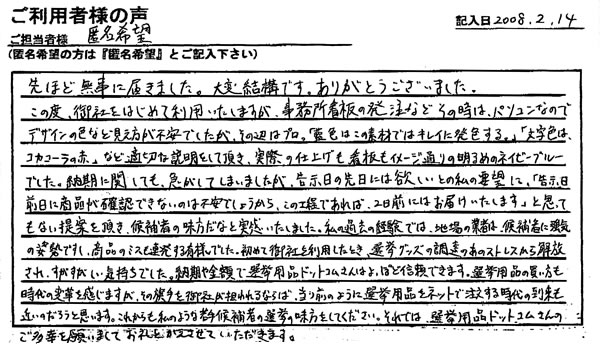 ご利用者様の声
記入日 2008.2.14
ご担当者様 匿名希望
(匿名希望の方は『匿名希望』とご記入下さい)
先ほど無事に届きました。大変結構です。ありがとうございました。
この度、御社をはじめて利用いたしますが、事務所看板の発注などその時は、パソコンなので
デザインの色など見え方が不安でしたが、その辺はプロ。「藍色はこの素材ではキレイに発色する。」「文字色は、
コカコーラの赤」など適切な説明をして頂き、実際の仕上げも看板もイメージ通りの明るめのネイビーブルー
でした。納期に関しても、急がしてしまいましたが、告示日の先日には欲しいとの私の要望に、「告示日
前日に商品が確認できないのは不安でしょうから、この工程であれば、2日前にはお届けいたします」と思って
もない提案を頂き、候補者の味方だなと実感いたしました。私の過去の経験では、地場の業者は、候補者に強気
の姿勢ですし、商品のミスも連発する有様でした。初めて御社を利用したとき、選挙グッズの調達のあのストレスから解放
され、すがすがしい気持ちでした。納期や金額で選挙用品ドットコムさんはよほど信頼できます。選挙用品の買い方も
時代の変革を感じますが、その旗手を御社が担われるならば、当り前のように選挙用品をネットで注文する時代の到来も
近いのだろうと思います。これからも私のような若手候補者の選挙の味方をしてください。それでは、選挙用品ドットコムさんの
ご多幸を願いましてお礼をかえさせていただきます。